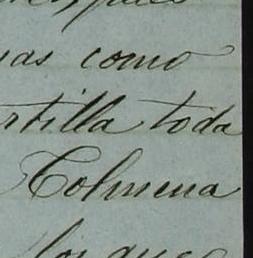 as como
rtilla toda
Colmena
los que